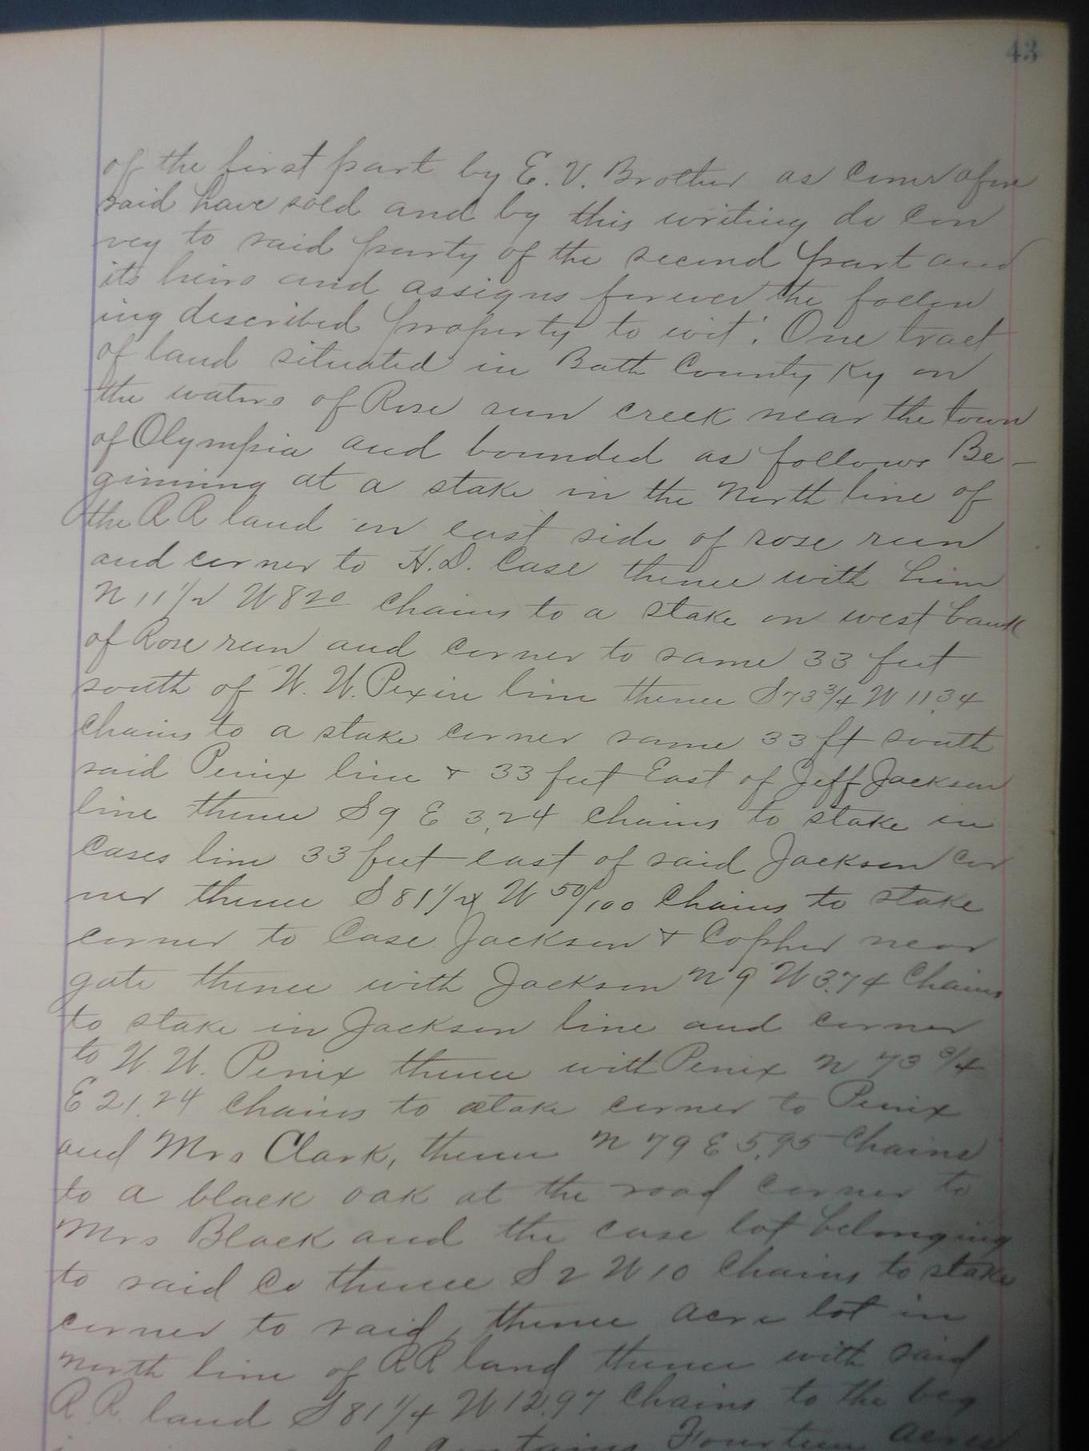 43
of the first part by E. V. Brother as Comr afore
said have sold and by this writing do con
vey to said party of the second part and
its heirs and assigns forever the follow
ing described property to wit: One tract
of land situated in Bath County Ky on
the waters of Rose run creek near the town
of Olympia and bounded as follows Be-
ginning at a stake in the North line of
the R R land on east side of rose run
and corner to H. D. Case thence with him
N 11 1/2 W 8 20 chains to a stake on west bank
of Rose run and corner to same 33 feet
south of W. W. Penix line thence S 73 3/4 W 11.34
chains to a stake corner same 33 ft south
said Penix line & 33 feet East of Jeff Jackson
line thence S 9 E 3.24 chains to stake in
Cases line 33 feet east of said Jackson cor
ner thence S 81 1/4 W 50/100 chains to stake
corner to Case Jackson & Copher near
gate thence with Jackson N 9 W 3.74 chains
to stake in Jackson line and corner
to W W. Penix thence with Penix N 73 3/4
E 21.24 chains to stake corner to Penix
and Mrs Clark, thence N 79 E 5.95 chains
to a black oak at the road corner to
Mrs Black and the case lot belonging
to said Co thence S 2 W 10 chains to stake
corner to said, thence acre lot in
north line of R R land thence with said
R R land S 81 1/4 W 12.97 chains to the beg
contains Fourteen acres